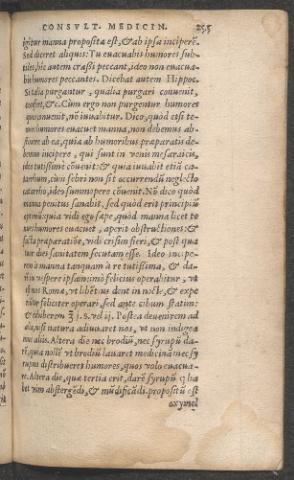 CONSVLT. MEDICIN. 255
igitur manna proposita est, & ab ipsa inciperē.
Sed diceret aliquis: Tu euacuabis humores sub-
tiles, hic autem crassi peccant, ideo non euacua-
bis humores peccantes. Dicebat autem Hippoc.
Si talia purgantur, qualia purgari conuenit,
confert, &c. Cùm ergo non purgentur humores
quos conuenit, nō iuuabitur. Dico, quòd etsi te-
nues humores euacuet manna, non debemus ab-
stinere ab ea, quia ab humoribus præparatis de-
bemus incipere, qui sunt in venis mesaraicis,
ideo tutissimè cōuenit: & quia iuuabit etiā ca-
tarrhum, cùm febri non sit occurrendū neglecto
catarrho, ideo summopere cōuenit. Nō dico quòd
manna penitus sanabit, sed quòd erit principiū
optimū: quia vidi ego sæpe, quòd manna licet te
nues humores euacuet, aperit obstructiones: &
facta præparatiōe, vidi crisim fieri, & post qua
tur dies sanitatem secutam esse. Ideo incipe-
rem à manna tanquam à re tutissima, & da-
rem vespere ipsam: imò felicius operabitur, vt
est vsus Romæ, vt libēt eius dent in nocte, & expe
ritur feliciter operari, sed ante cibum statim:
& exhiberem ℥ j. s. vel ij. Postea deuenirem ad
alia, nisi natura adiuuaret nos, vt non indigea
mus aliis. Altera die nec brodiū, nec syrupū da-
rē, quia nollē vt brodiū lauaret medicinā nec sy
rupus distribueret humores, quos volo euacua-
re. Altera die, quæ tertia erit, darē syrupū q̄ ha
bet vim abstergēdi, & mūdificādi. propositū est
oxymel